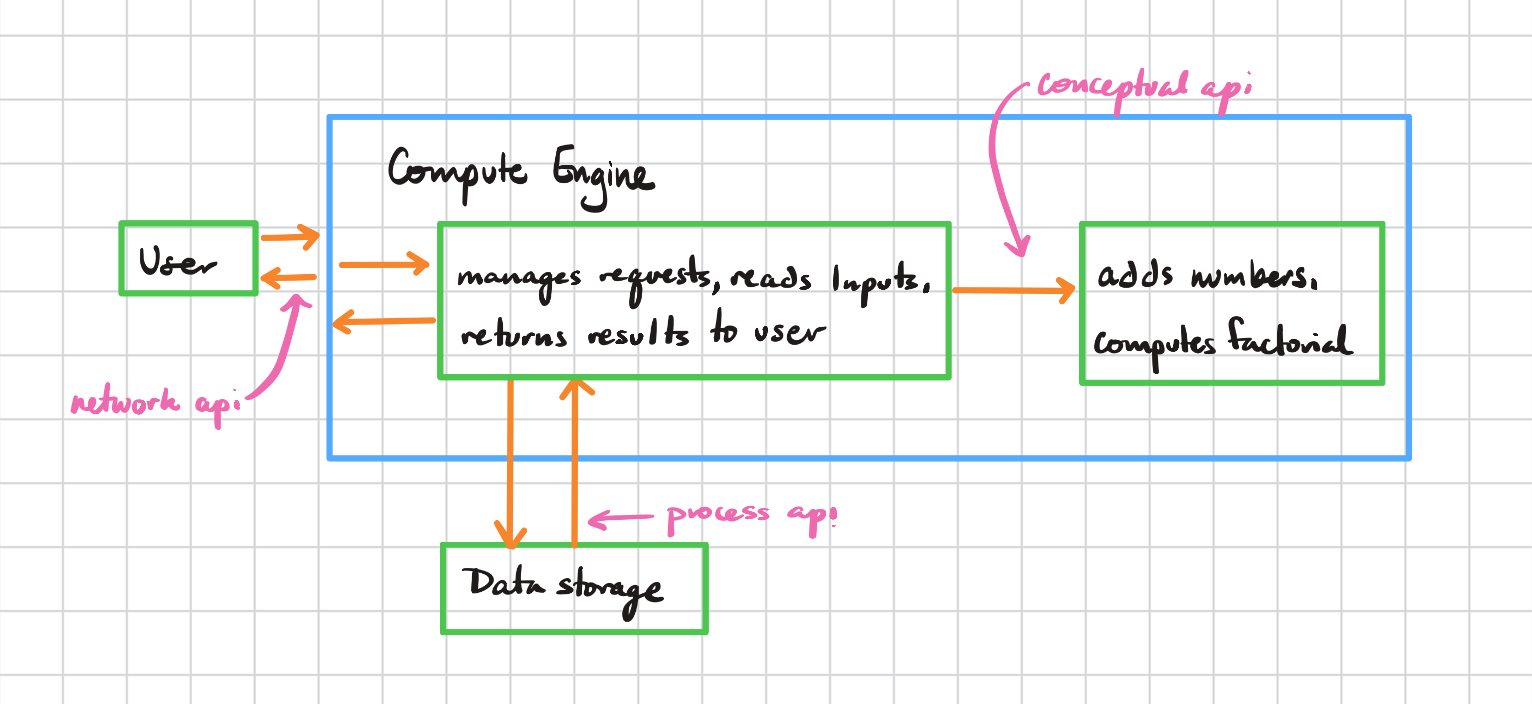 conceptual api
Compute Engine
User
manages requests, reads Inputs,
returns results to user
adds numbers,
computes factorial
network api
process api
Data storage